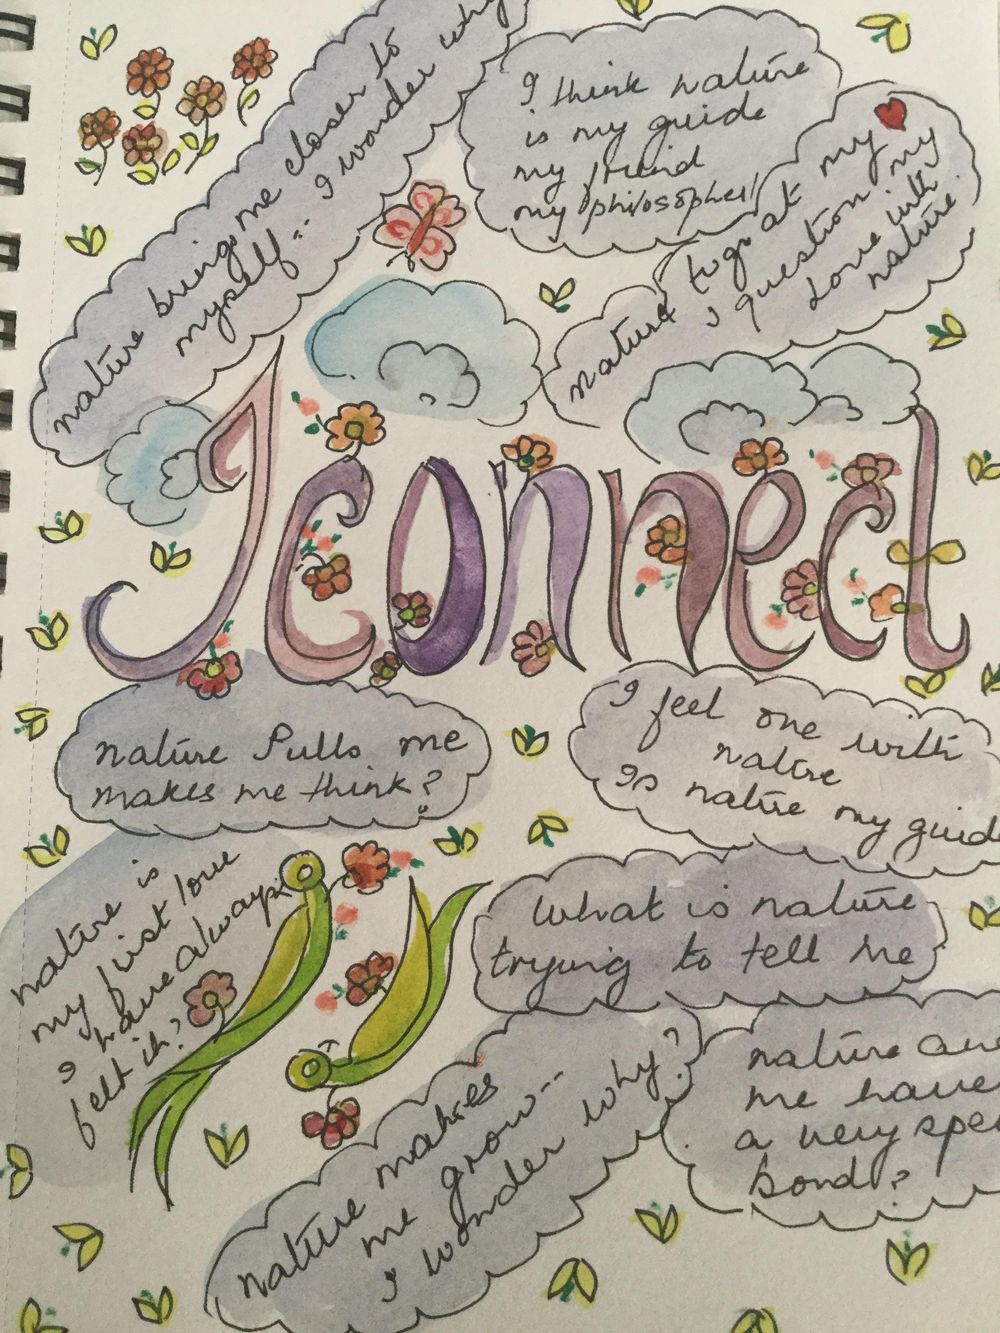 nature brings me closer to
myself... I wonder why
I think nature
is my guide
my friend
my philosopher
nature tugs at my
I question my
Love with
nature.
I connect
nature Pulls me
makes me think?
I feel one with
nature
Is nature my guid
nature is
my first love
I have always
felt it?
What is nature
trying to tell me
nature makes
me grow--
I wonder why?
nature an
me have
a very spe
bond?